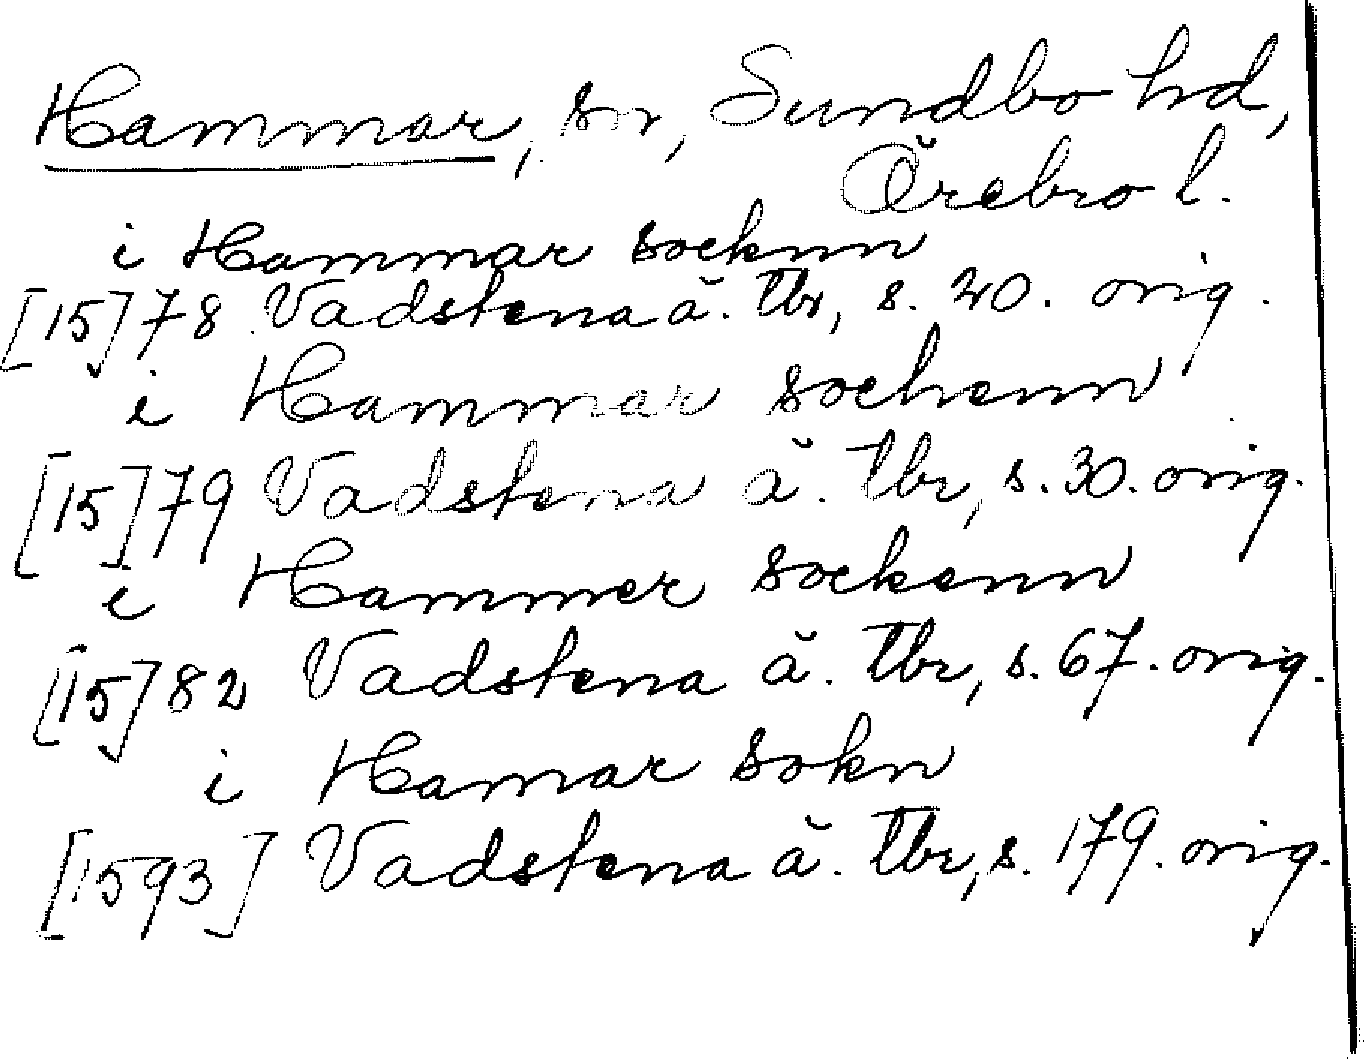 Hammar, sn, Sundbo hd,
Örebro l.
i Hammar socknn
[15]78 Vadstena ä. tbr, s. 20. orig.
i Hammar sochenn
[15]79 Vadstena ä. tbr, s. 30. orig.
i Hammer sockenn
[15]82 Vadstena ä. tbr, s. 67. orig.
i Hamar sokn
[1593] Vadstena ä. tbr, s. 179. orig.